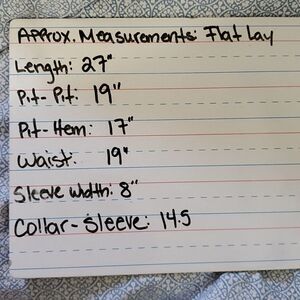 Approx. Measurements: Flat Lay
Length: 27"
Pit-Pit: 19"
Pit-Hem: 17"
Waist: 19"
Sleeve Width: 8"
Collar-Sleeve: 14.5